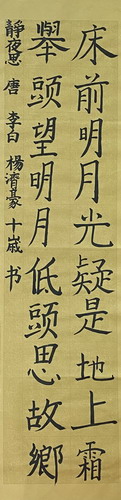 床前明月光疑是地上霜
舉頭望明月低頭思故鄉
靜夜思 唐 李白 楊濟豪 十歲 书